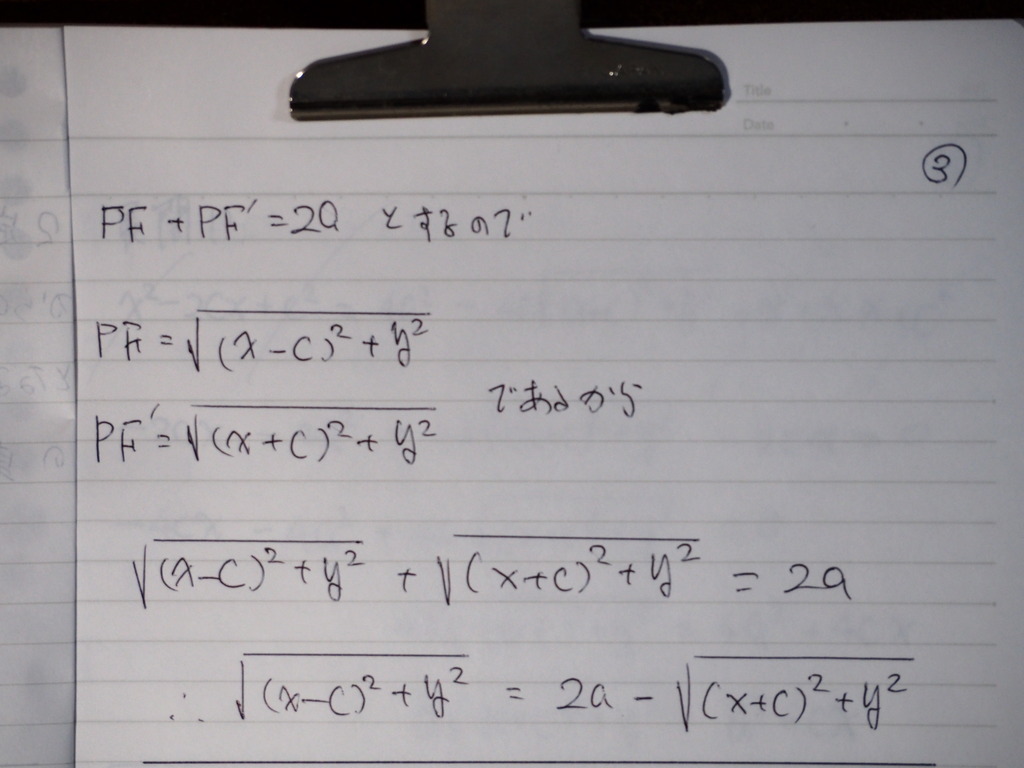 Title
Date
③
PF + PF' = 2a とするので
PF = √((x-c)²+y²)
であるから
PF' = √((x+c)²+y²)
√((x-c)²+y²) + √((x+c)²+y²) = 2a
∴ √((x-c)²+y²) = 2a - √((x+c)²+y²)